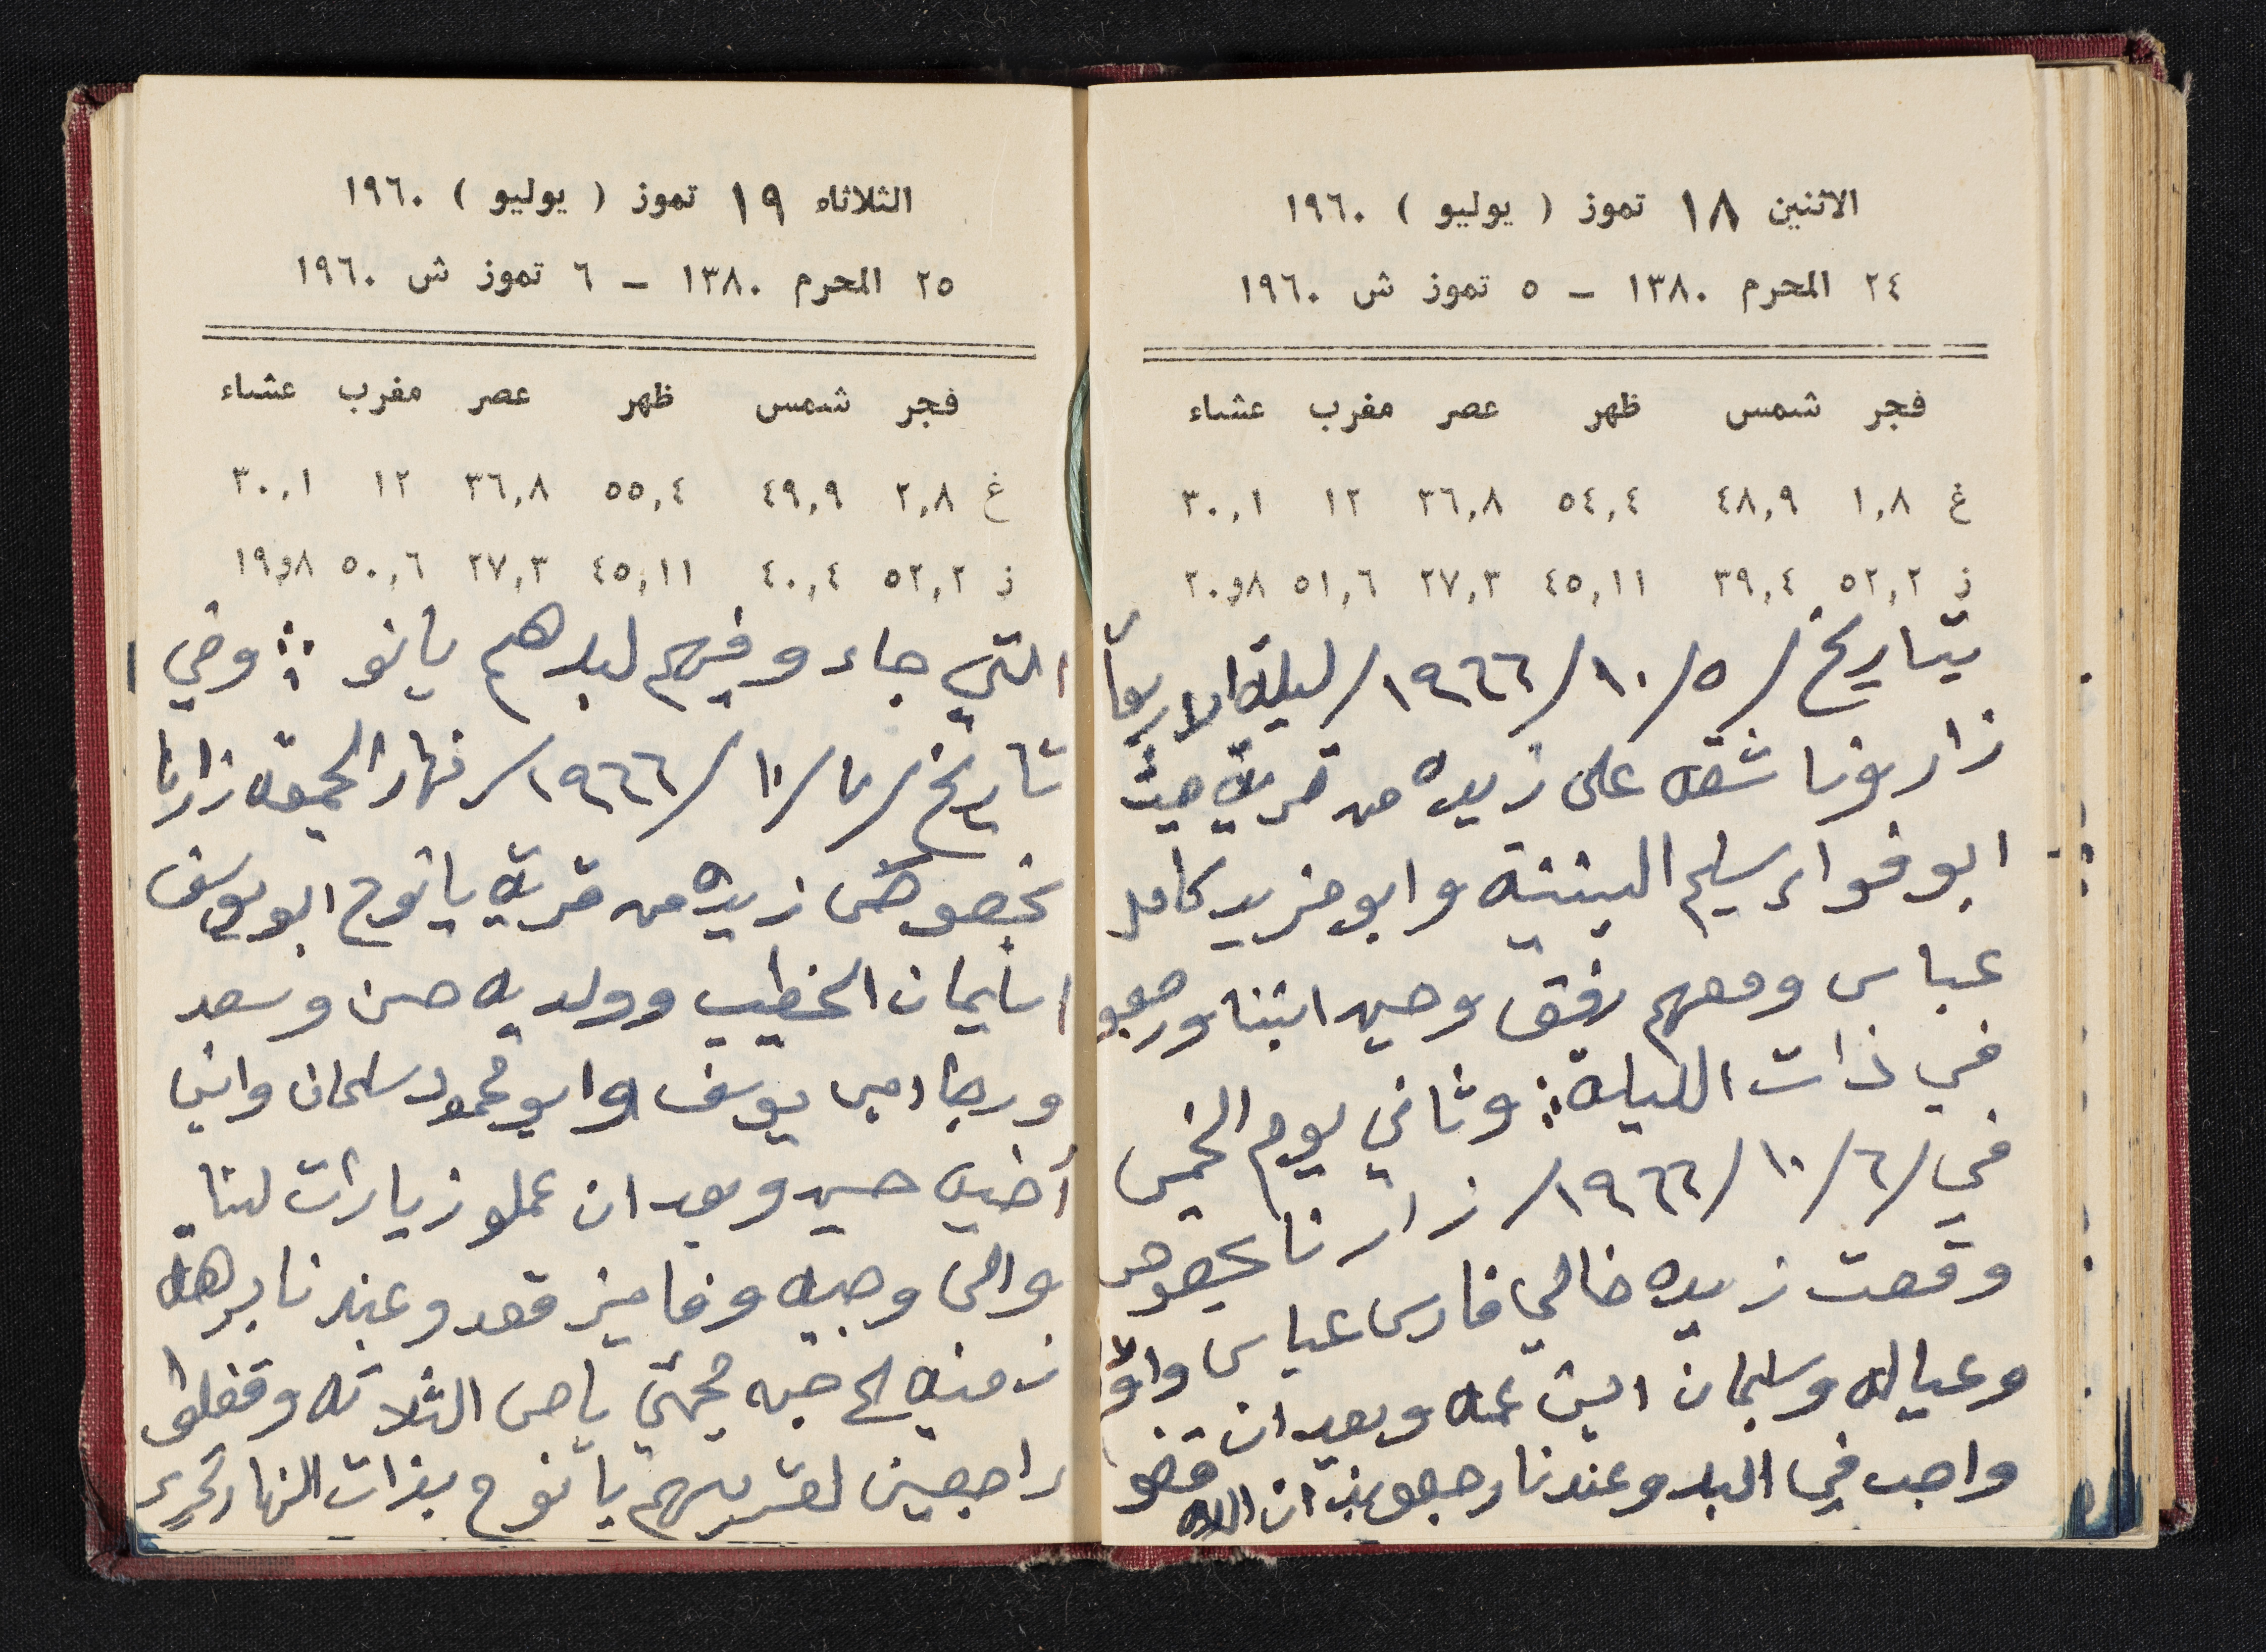 الاثنين ١٨ تموز ( يوليو ) ١٩٦٠
٢٤ المحرم ١٣٨٠ - ٥ تموز ش ١٩٦٠
فجر شمس ظهر عصر مغرب عشاء
غ ١,٨ ٤٨,٩ ٥٤,٤ ٣٦,٨ ١٢ ٣٠,١
ز ٥٢,٢ ٣٩,٤ ٤٥,١١ ٢٧,٣ ٥١,٦ ٢٠,٨
بتاريخ /٥/١٠/١٩٦٦/ ليلة الاربعاً
زارونا شقه على زيده من قرية
ابو فواد سليم البيتنية وابو مزيد كامل
عباس ومعهم رفيق وحيد ابننا ورجعو
في ذات الليلة؛ وثاني يوم الخميس
في /٦/١٠/١٩٦٦/ زارنا بخصوص
وقعت زيده خالي فارس عباس
وعياله وسليمان ابن عمه وبعد ان قضو
واجب في البلد وعندنا رجعو
الثلاثاء ١٩ تموز ( يوليو ) ١٩٦٠
٢٥ المحرم ١٣٨٠ - ٦ تموز ش ١٩٦٠
فجر شمس ظهر عصر مغرب عشاء
غ ٢,٨ ٤٩,٩ ٥٥,٤ ٣٦,٨ ١٢ ٣٠,١
ز ٥٢,٢ ٤٠,٤ ٤٥,١١ ٢٧,٣ ٥٠,٦ ١٩,٨
التي جاءو فيهم لبلدهم يانو؛ وفي
تاريخ /٧/١٠/١٩٦٦/ نهار الجمعه زارنا
بخصوص زيده من قرية يانوح ابو يوسف
سليمان الخطيب وولديه حسن وسعد
ورجا يوسف وابو محمود سلمان وابني
أخيه حسيد وبعد ان عملو زيارات لنا
والى وجيه وفاميز قعدو عندنا برهه
زمنيه ياحي الثلاثه وقفلوا
راجعين لقريتهم يانوح بذات النهار تحرير